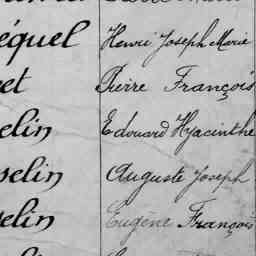 équel Henri Joseph Marie
et Pierre François
elin Edouard Hyacinthe
selin Auguste Joseph
elin Eugène François